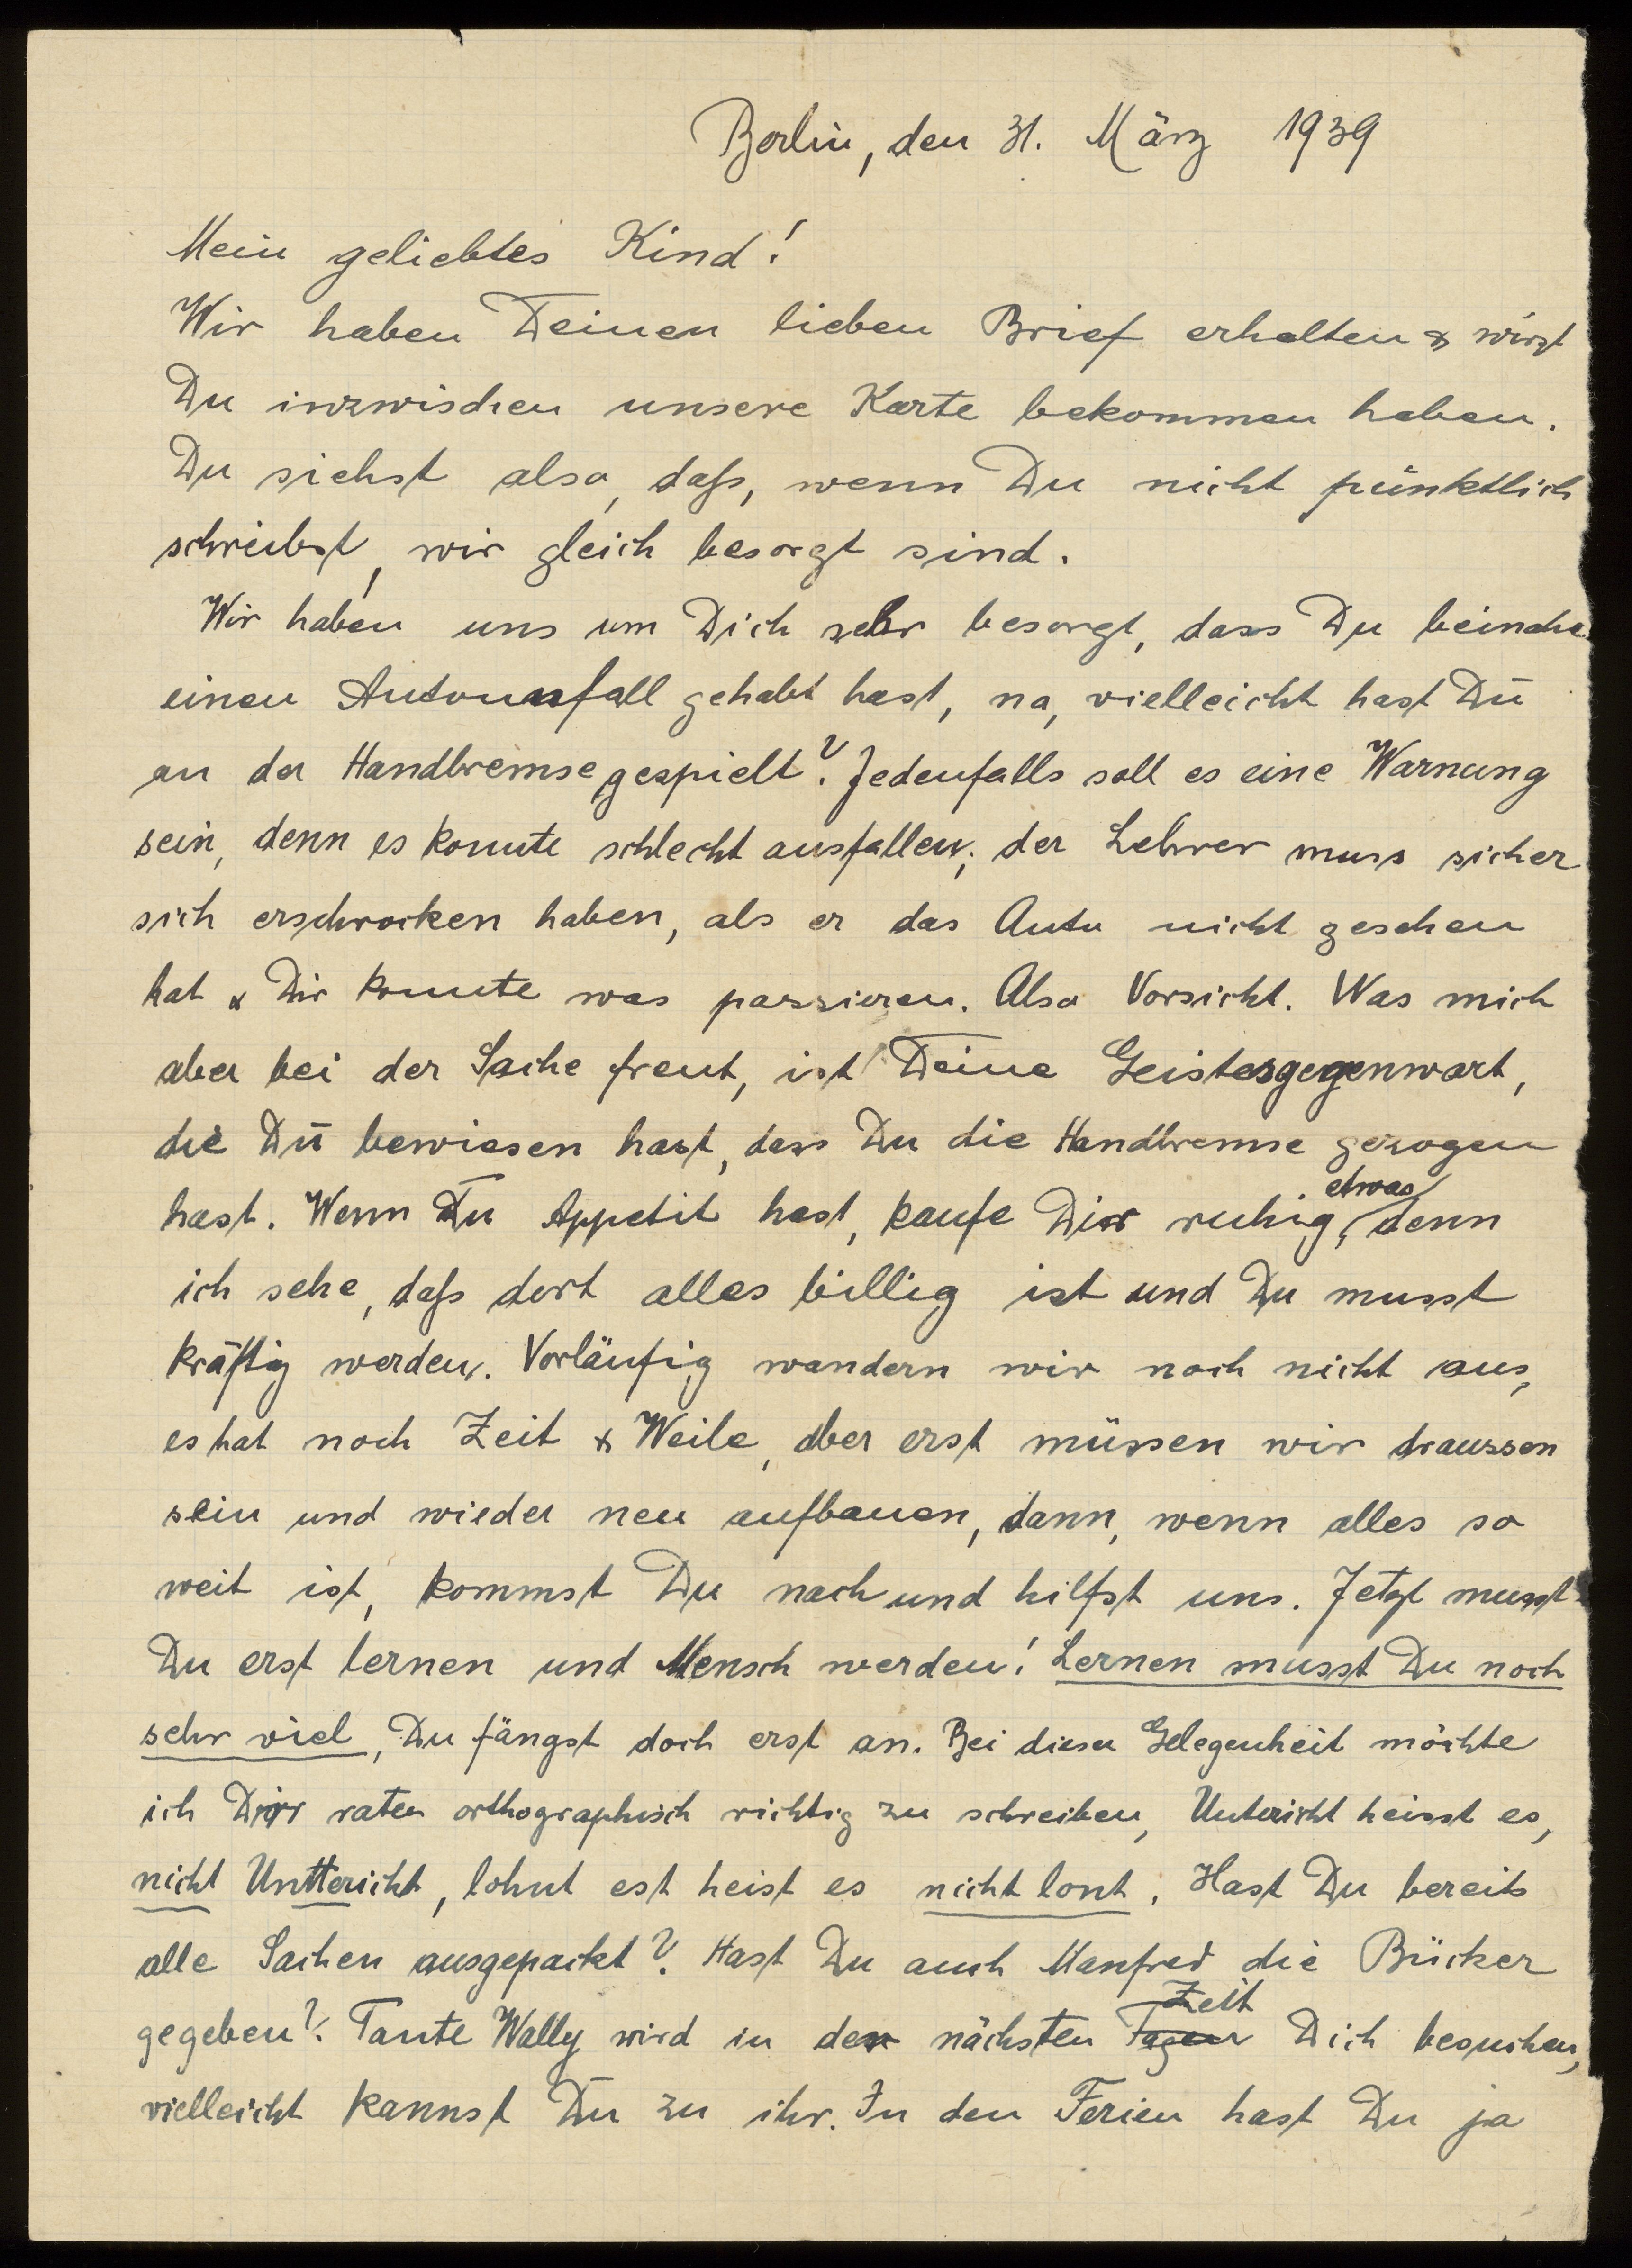 Berlin, den 31. März 1939
Mein geliebtes Kind!
Wir haben Deinen lieben Brief erhalten & wirst
Du inzwischen unsere Karte bekommen haben.
Du siehst also, daſs, wenn Du nicht pünktlich
schreibst, wir gleich besorgt sind.
Wir haben uns um Dich sehr besorgt, dass Du beinahe
einen Autounfall gehabt hast, na, vielleicht hast Du
an der Handbremse gespielt? Jedenfalls soll es eine Warnung
sein, denn es konnte schlecht ausfallen, der Lehrer muss sicher
sich erschrocken haben, als er das Auto nicht gesehen
hat & Dir konnte was passieren. Also Vorsicht. Was mich
aber bei der Sache freut, ist Deine Geistesgegenwart,
die Du bewiesen hast, dass Du die Handbremse gezogen
hast. Wenn Du Appetit hast, kaufe Dir ruhig etwas, denn
ich sehe, daſs dort alles billig ist und Du musst
kräftig werden. Vorläufig wandern wir noch nicht aus,
es hat noch Zeit & Weile, aber erst müssen wir draussen
sein und wieder neu aufbauen, dann, wenn alles so
weit ist, kommst Du nach und hilfst uns. Jetzt musst
Du erst lernen und Mensch werden! Lernen musst Du noch
sehr viel, Du fängst doch erst an. Bei dieser Gelegenheit möchte
ich Dir raten orthographisch richtig zu schreiben, Unterricht heisst es,
nicht Untterricht, lohnt est heist es nicht lont. Hast Du bereits
alle Sachen ausgepackt? Hast Du auch Manfred die Bücher
gegeben? Tante Wally wird in der nächsten Tagen Zeit Dich besuchen,
vielleicht kannst Du zu ihr. In den Ferien hast Du ja